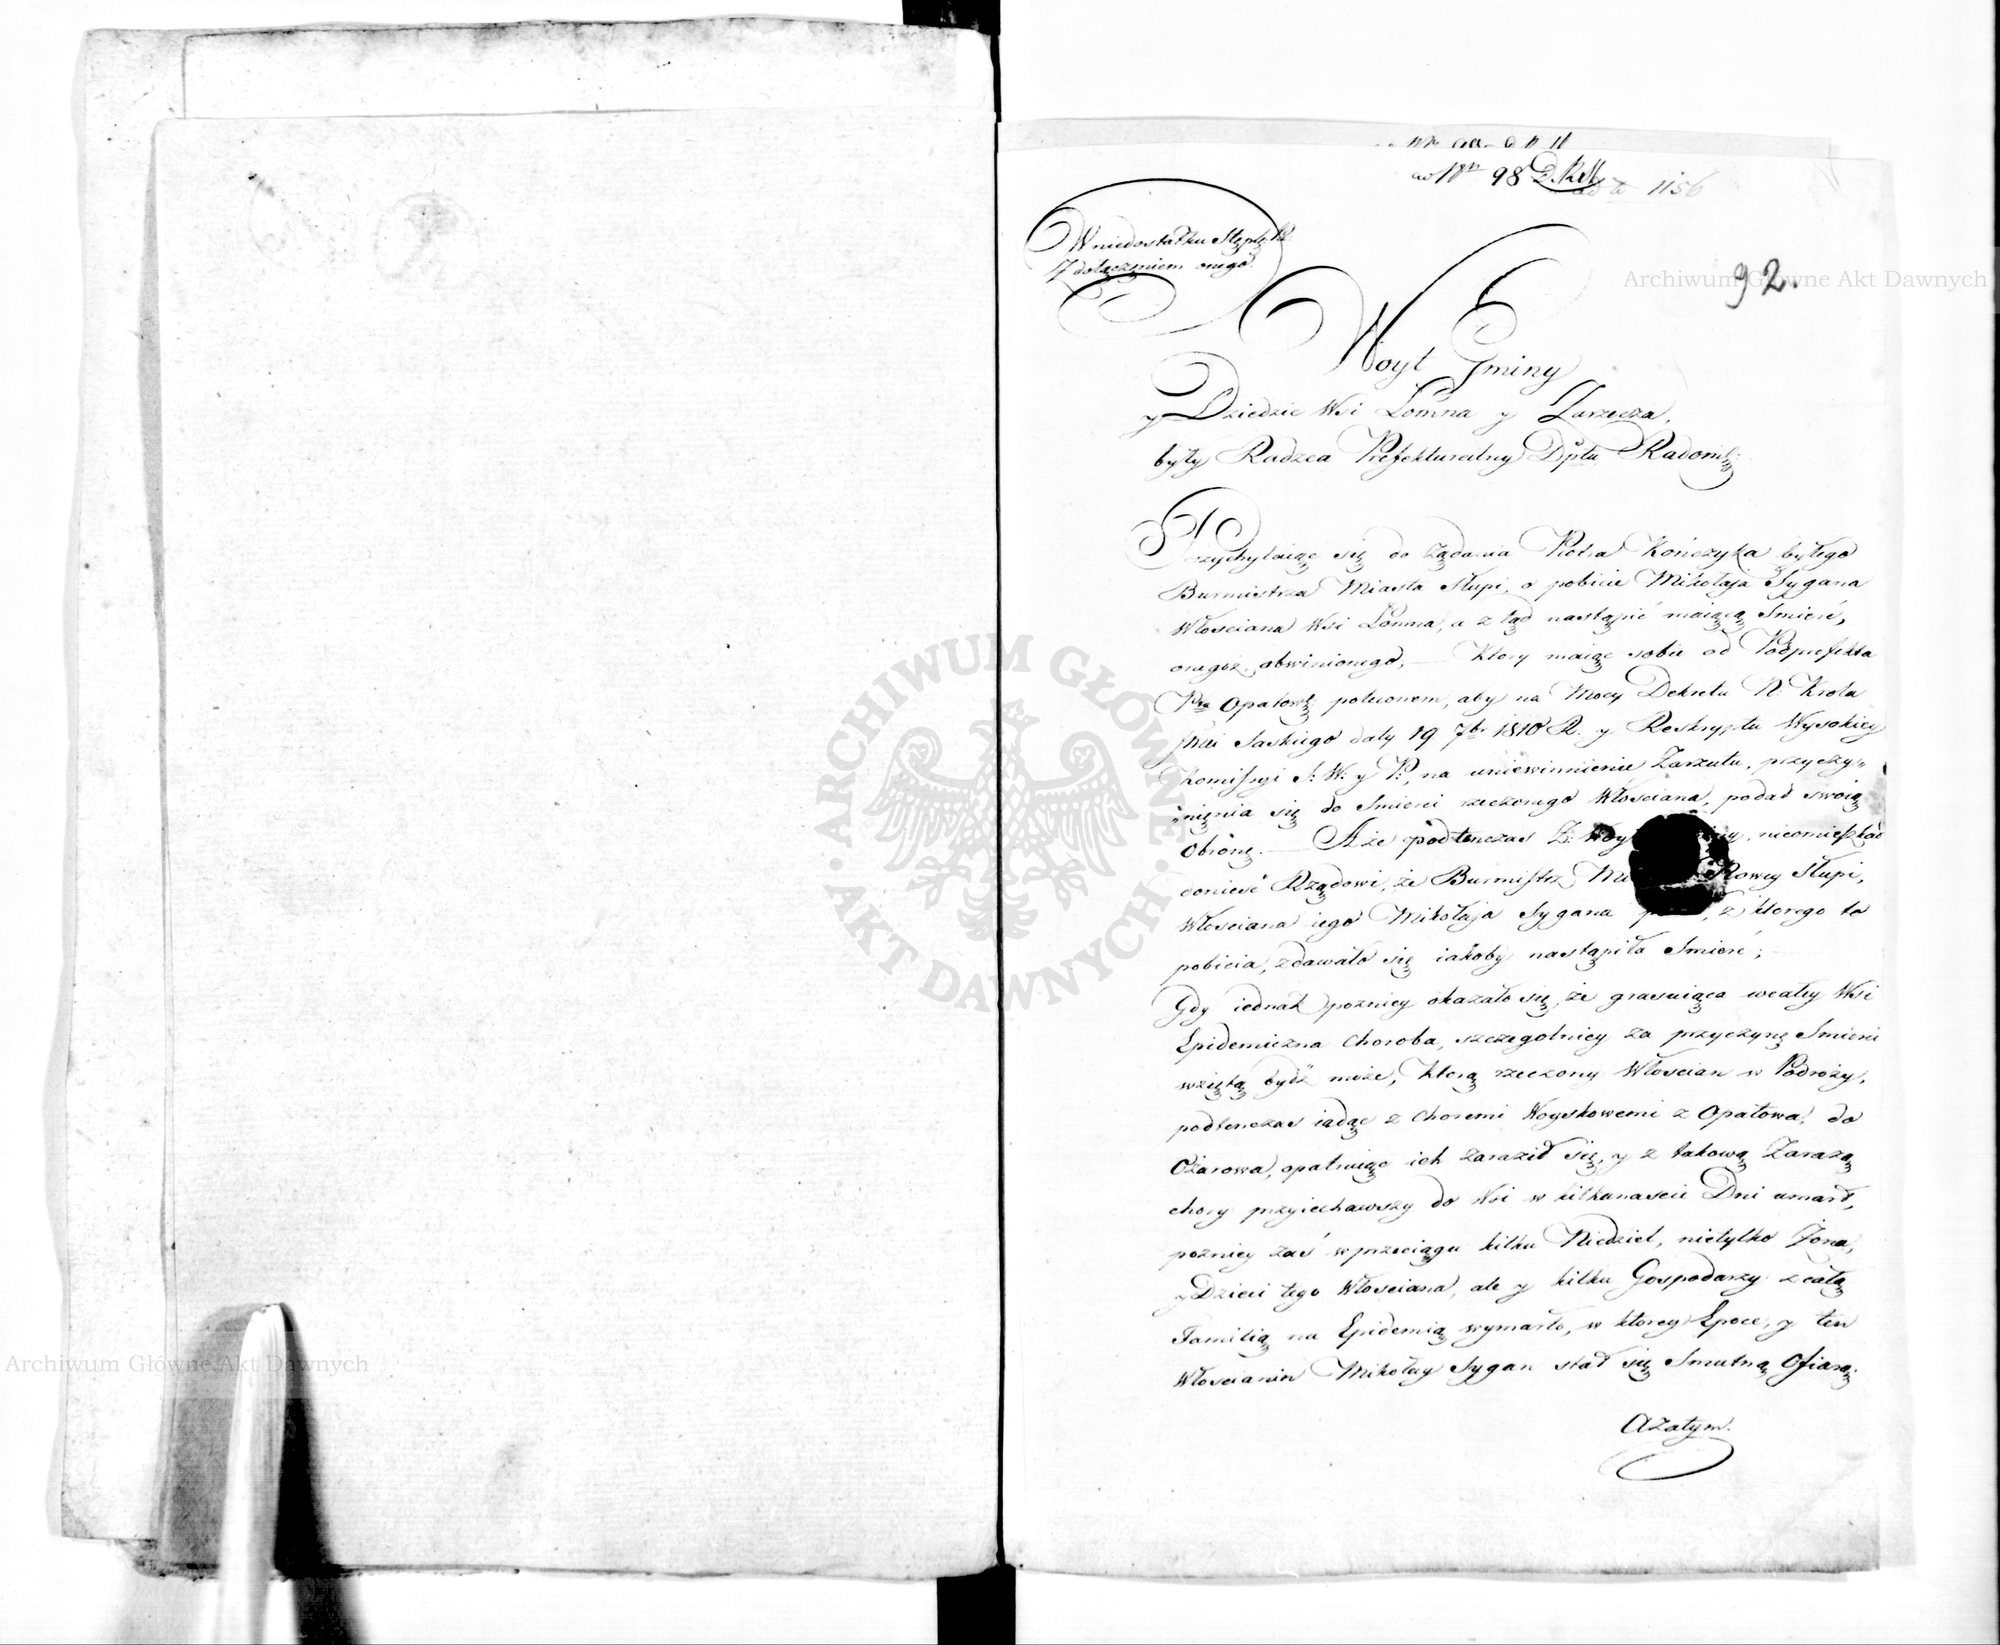 ad Nrn 98 D.K.M.
1156
W niedostatku Stęplu
Z dołączeniem onego.
92.
Woyt Gminy
y Dziedzic Wsi Łomna y Zarzecza,
były Radzca Prefekturalny Dptu Radomsk:
Przychylaiąc się do żądania Piotra Kończyka byłego
Burmistrza Miasta Słupi, o pobicie Mikołaja Sygana
Włościana Wsi Łomna, a z tąd nastąpić maiącą Smierć,
onegoż obwinionego, — Ktory maiąc sobie od Podprefekta
Ptu Opatows: polecenem, aby na Mocy Dekretu N: Krola
Jmci Saskiego daty 19 7br 1810 R. y Reskryptu Wysokiey
Komissyi S: W: y P:, na uniewinnienie Zarzutu, przyczy„
„nienia się do Smierci rzeczonego Włościana, podał swoią
Obronę. — A że podtenczas Z: Woyt niemieszkał
donieść Rządowi, że Burmistrz Nowey Słupi,
Włościana iego Mikołaja Sygana z ktorego to
pobicia, zdawało się iakoby nastąpiła Smierć; —
Gdy iednak pozniey okazało się, że grasuiąca wcałey Wsi
Epidemiczna Choroba, szczegolniey za przyczynę Smierci
wziętą bydź może, Ktorą rzeczony Włościan w Podroży,
podtenczas iadąc z Choremi Woyskowemi z Opatowa, do
Ożarowa, opatruiąc ich zaraził się, y z takową Zarazą
chory przyiechawszy do Wsi w kilkanascie Dni umarł,
pozniey zaś w przeciągu kilku Niedziel, nietylko Żona,
y Dzieci tego Włościana, ale y kilku Gospodarzy z całą
Familią na Epidemią wymarło, w ktorey Epoce, y ten
Włościanin Mikołay Sygan stał się Smutną Ofiarą.
A Zatym.
Archiwum Główne Akt Dawnych
Archiwum Główne Akt Dawnych
ARCHIWUM GŁÓWNE AKT DAWNYCH